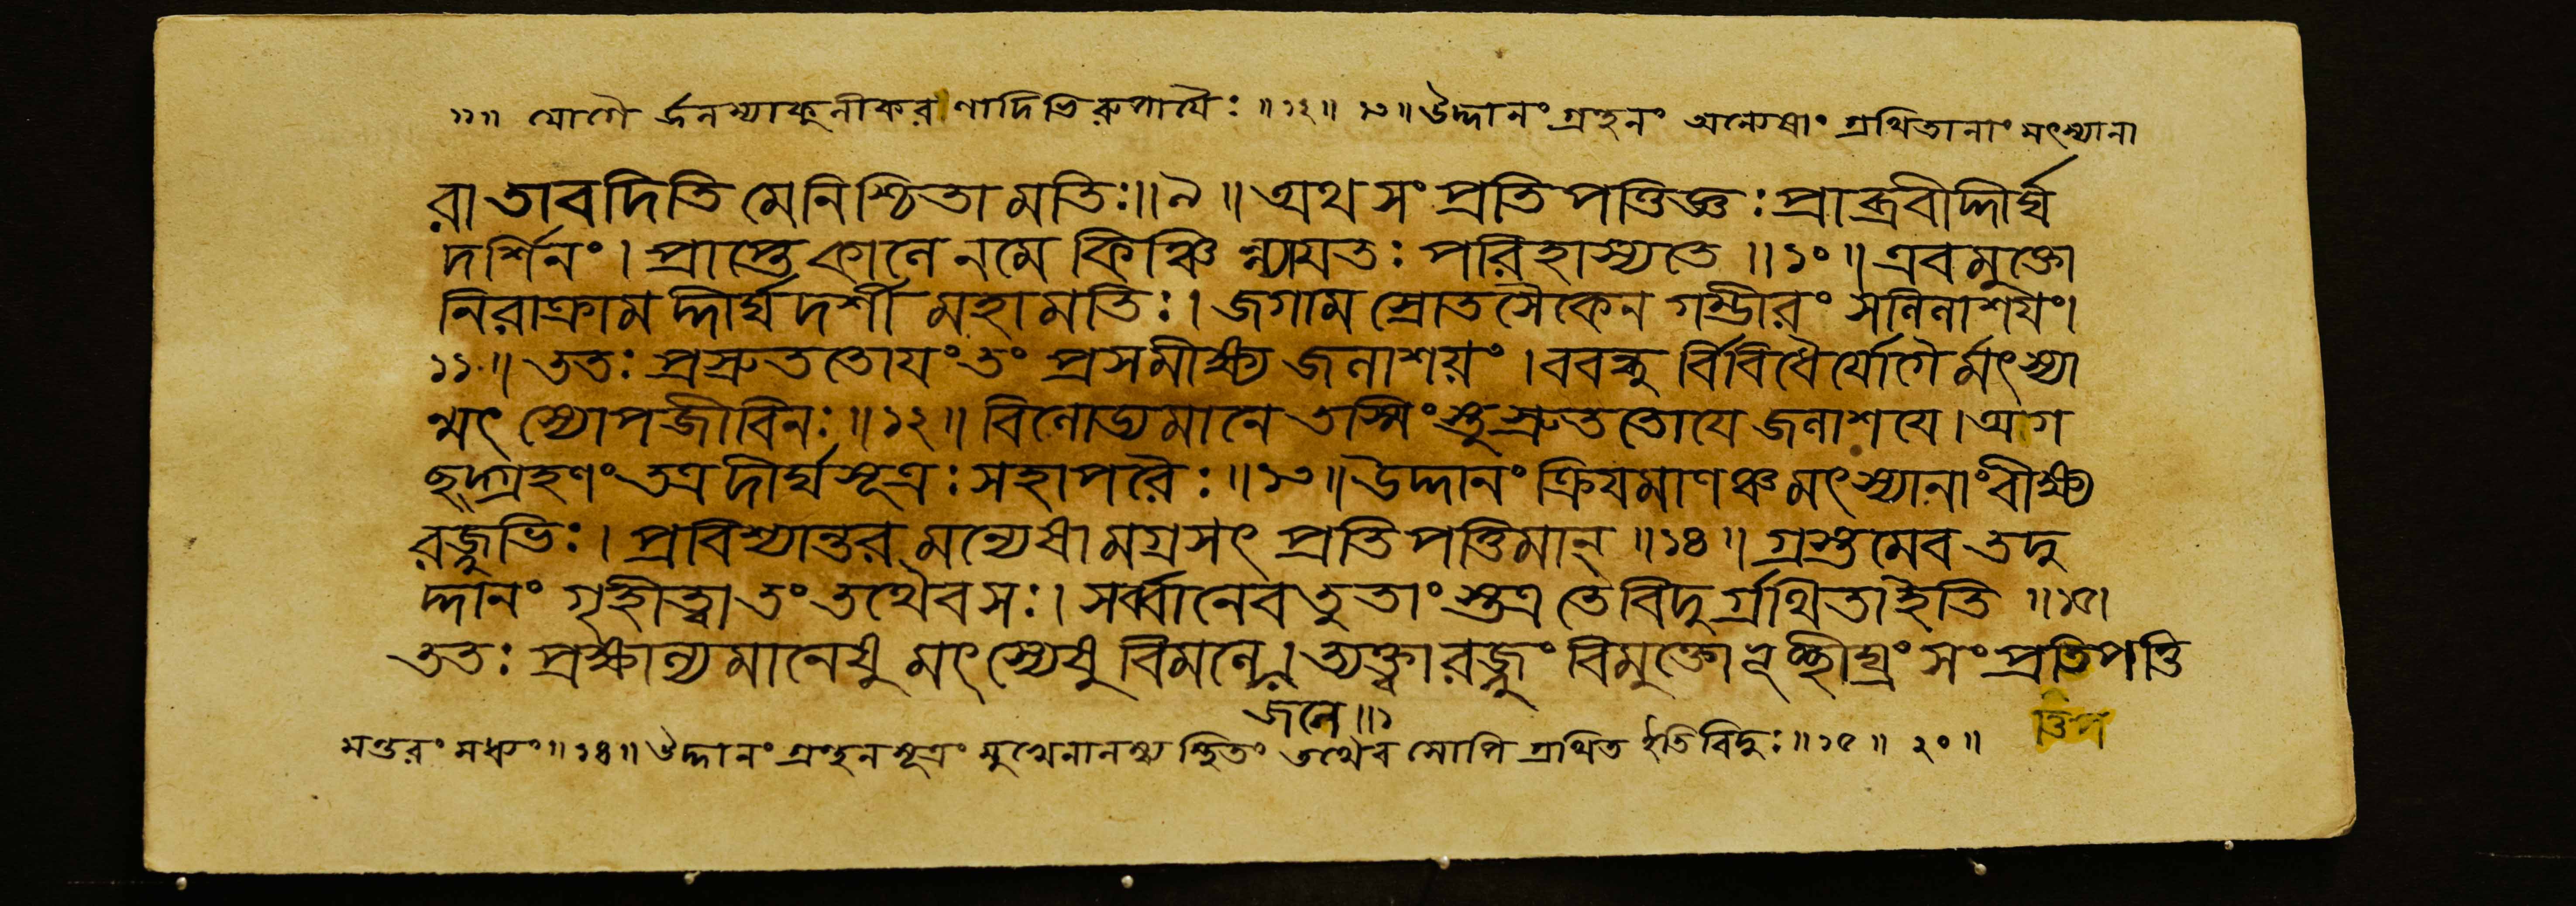 ১১॥ যোগৈ র্জলস্যাকুলীকরণাদিভিরুপায়ৈঃ ॥১২॥ ১৩॥ উদ্দানং গ্রন্থনং অন্যেষাং গ্রথিতানাং মৎস্যানা
রা তাবদিতি মে নিশ্চিতা মতিঃ॥৯॥ অথ সংপ্রতিপত্তিজ্ঞঃ প্রাব্রবীদ্দীর্ঘ
দর্শিনং। প্রাপ্তে কালে ন মে কিঞ্চি ন্ন্যায়তঃ পরিহাস্যতে ॥১০॥ এবমুক্তো
নিরাক্রামদ্দীর্ঘদর্শী মহামতিঃ। জগাম স্রোতসৈকেন গম্ভীরং সলিলাশয়ং।
১১॥ ততঃ প্রস্রুততোয়ং তং প্রসমীক্ষ্য জলাশয়ং। ববন্ধু র্বিবিধৈর্যোগৈ র্মৎস্যা
ন্মৎস্যোপজীবিনঃ॥১২॥ বিলোড্যমানে তস্মিংস্তু স্রুততোয়ে জলাশয়ে। অগ
ছদ্গ্রহণং তত্র দীর্ঘসূত্রঃ সহাপরৈঃ॥১৩॥ উদ্দানং ক্রিয়মাণঞ্চ মৎস্যানাং বীক্ষ্য
রজ্জুভিঃ। প্রবিশ্যান্তরমন্যেষামগ্রসৎ প্রতিপত্তিমান্ ॥১৪॥ গ্রস্তমেব তদু
দ্দানং গৃহীত্বা তং তথৈব সঃ। সর্ব্বানেব তু তাংস্তত্র তে বিদুর্গ্রথিতা ইতি ॥১৫।
ততঃ প্রক্ষাল্যমানেষু মৎস্যেষু বিমলে। ত্যক্ত্বা রজ্জুং বিমুক্তোঽভূচ্ছীঘ্রং সংপ্রতিপত্তি
জলে॥১
মন্তরং মধ্যং॥১৪॥ উদ্দানং গ্রন্থনসূত্রং মুখেনালম্ব্য স্থিতং তথৈব সোপি গ্রথিত ইতি বিদুঃ॥১৫॥ ২০॥